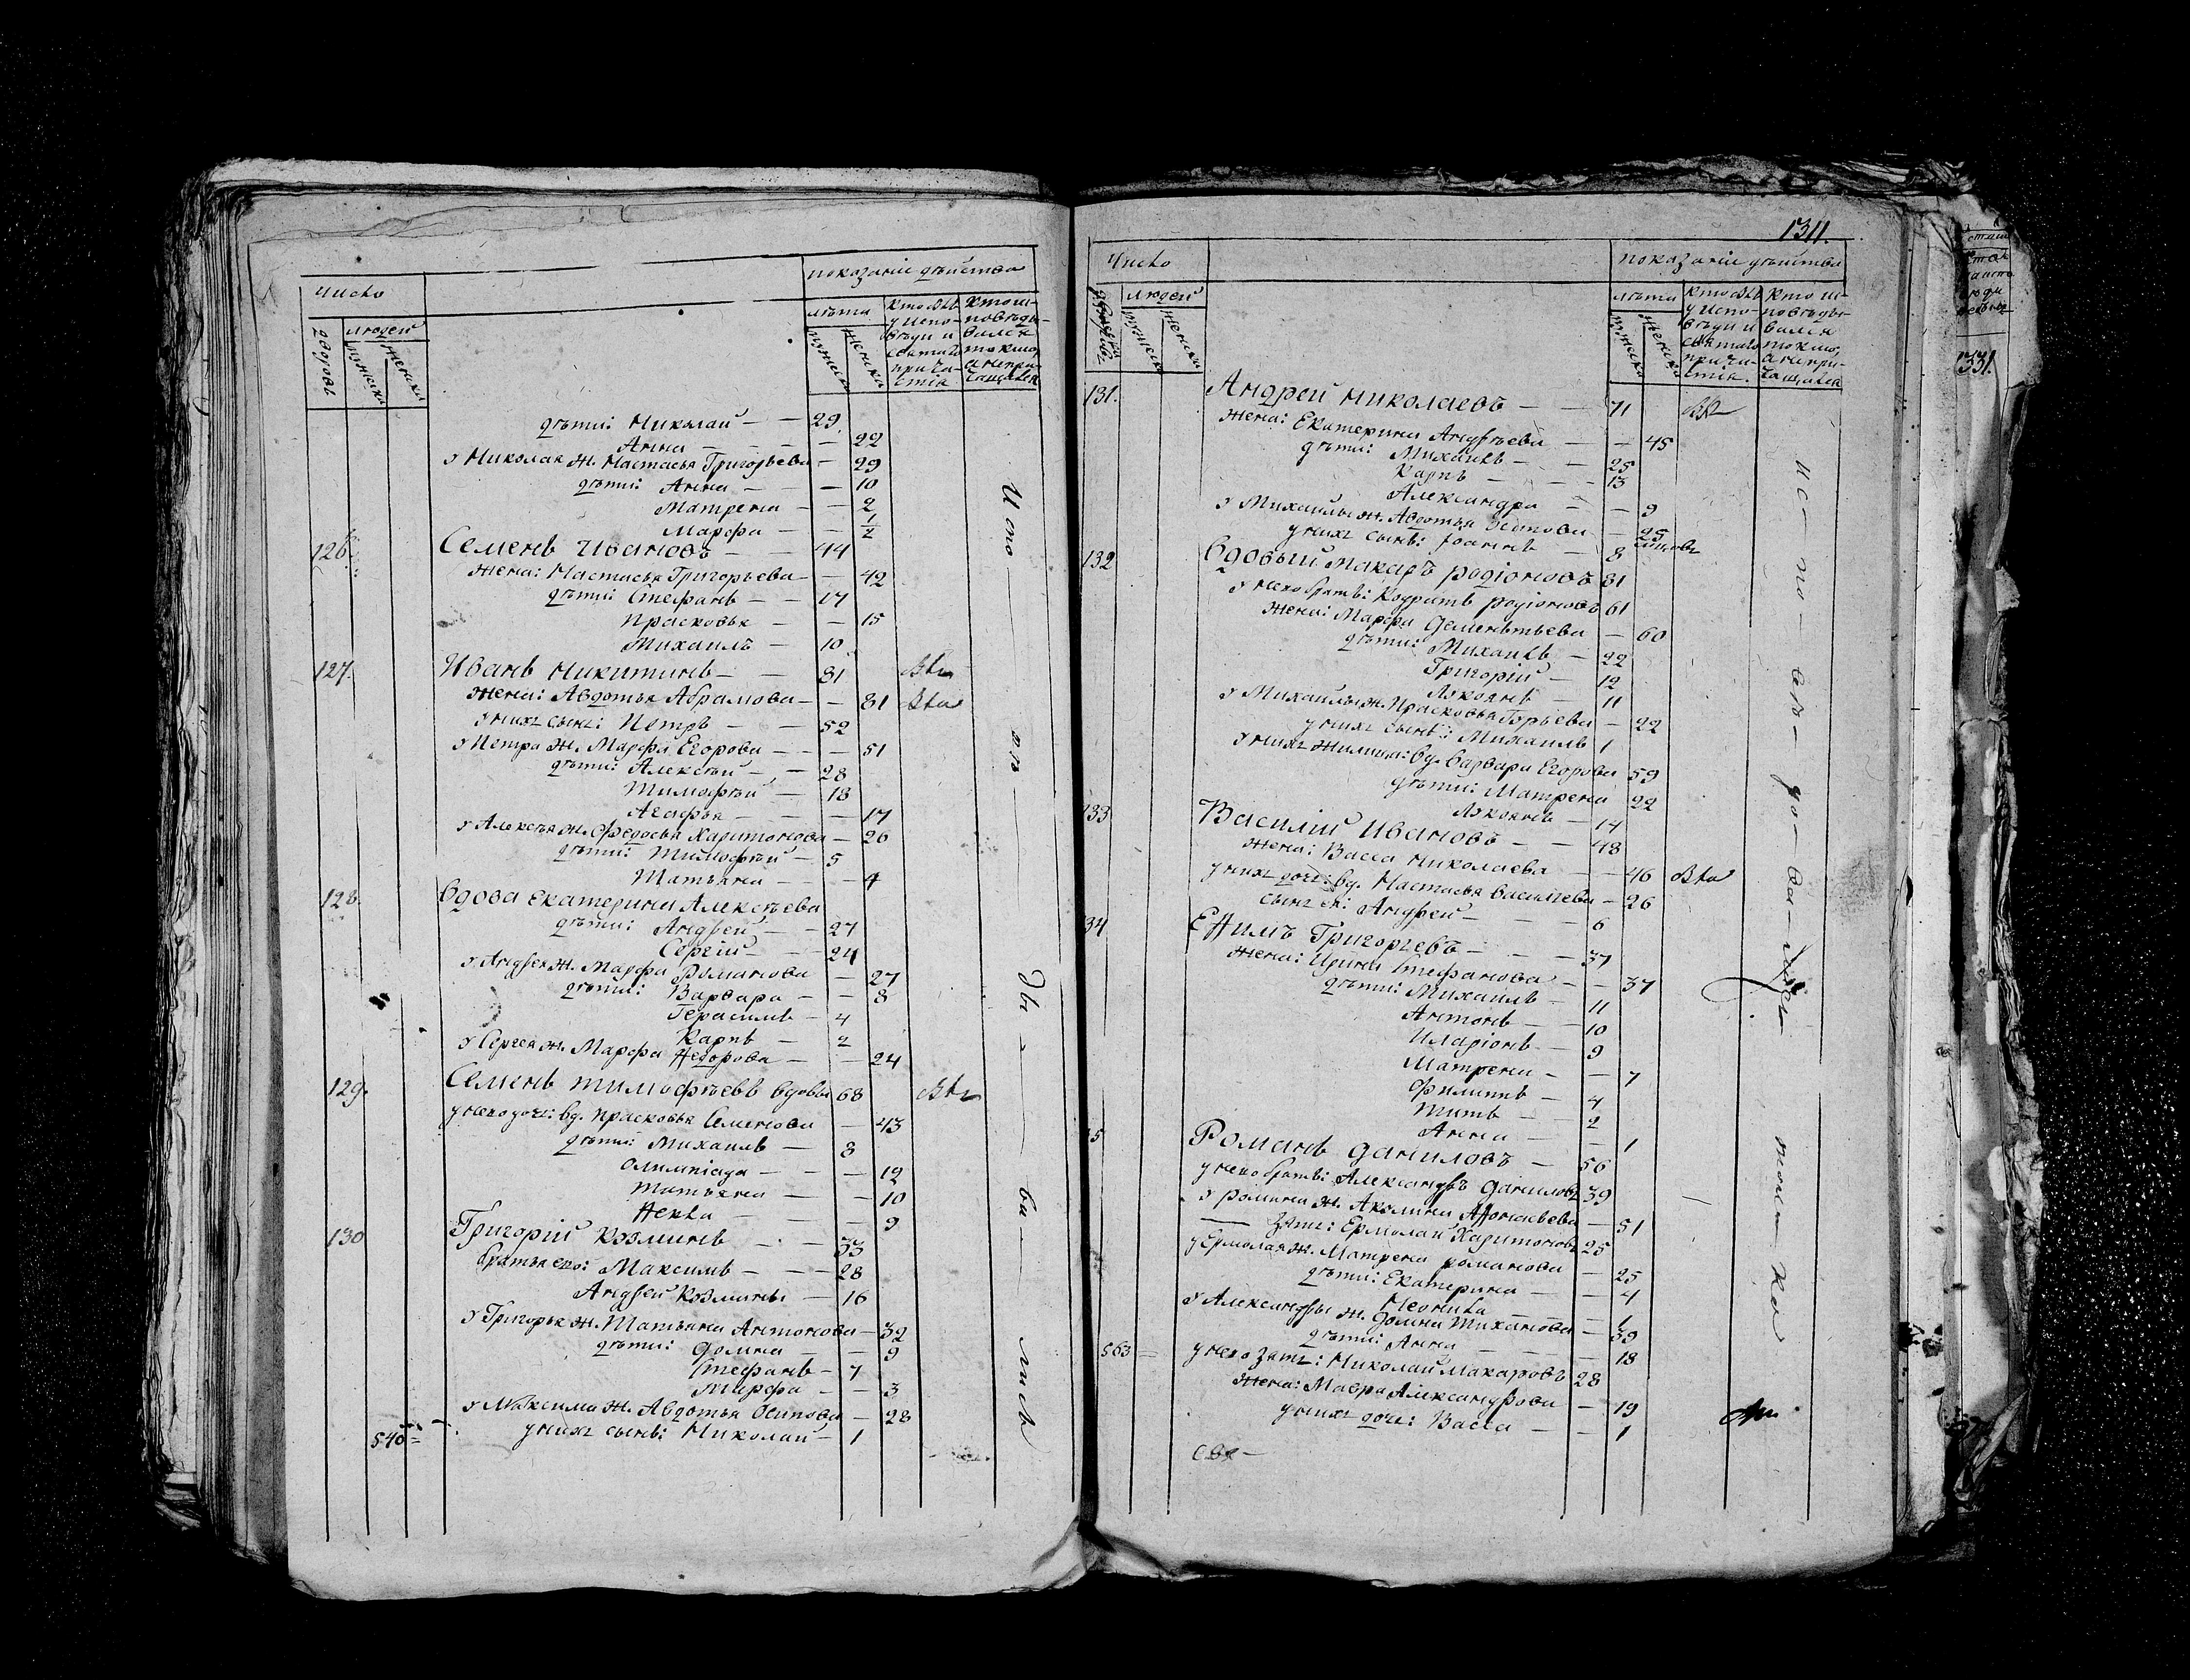 число
показаніе дѣйства
дворовъ
людей
мужеска
женска
лѣта
мужеска
женска
кто былъ у исповѣди и святаго причастія
кто исповѣдывался токмо, а не причащался
дѣти: Николай — 29
Анна — — 22
у Николая ж. Настасья Григорьева — 29
дѣти: Анна — — 10
Матрена — — 2
Марфа — — 1/2
126. Семенъ Ивановъ — — 44
жена: Настасья Григорьева — — 42
дѣти: Стефанъ — — 17
Прасковья — — 15
Михаилъ — 10
127. Иванъ Никитинъ — — 81
жена: Авдотья Абрамова — — 81
у нихъ сынъ: Петръ — — 52
у Петра ж. Марфа Егорова — — 51
дѣти: Алексѣй — — 28
Тимофѣй — 18
Агафья — — 17
у Алексѣя ж. Федосья Харитонова — 26
дѣти: Тимофѣй — 5
Татьяна — — 4
128. Вдова Екатерина Алексѣева
дѣти: Андрей — — 27
Сергій — — 24
у Андрея ж. Марфа Романова — 27
дѣти: Варвара — — 8
Герасимъ — 4
Карпъ — 2
у Сергея ж. Марфа Ѳедорова — — 24
129. Семенъ Тимофѣевъ вдовый 68
у него дочь: вд. Прасковья Семенова — 43
дѣти: Михаилъ — 8
Олимпіада — — 12
Татьяна — — 10
Ѳекла — — 9
130 Григорій Козминъ — — 33
братья его: Максимъ — — 28
Андрей Козмины — 16
у Григорья ж. Татьяна Антонова — 32
дѣти: Домна — — 9
Стефанъ — 7
Марфа — — 3
у Максима ж. Авдотья Осипова — 28
540 у нихъ сынъ: Николай — 1
1311.
число
показаніе дѣйства
людей
мужеска
женска
лѣта
мужеска
женска
кто былъ у исповѣди и святаго причастія.
кто исповѣдывался токмо, а не причащался
131. Андрей Николаевъ — — 71
жена: Екатерина Андреева — — 45
дѣти: Михаилъ — — 25
Карпъ — — 13
Александра — — 9
у Михайлы ж. Авдотья — 25
у нихъ сынъ: Іоаннъ — 8
132 Вдовый Макаръ Родіоновъ 81
у него братъ: Кодратъ Родіоновъ 61
жена: Марфа Дементьева — 60
дѣти: Михаилъ — 22
Григорій — 12
Лукьянъ — 11
у Михайлы ж. Прасковья Гурьева — 22
у нихъ сынъ: Михаилъ 1
у нихъ жилица: вд. Варвара Егорова 59
дѣти: Матрена 22
Лукьянъ — 14
133 Василій Ивановъ — — 48
жена: Васса Николаева — — 46
у нихъ дочь: вд. Настасья Васильева — 26
сынъ ея: Андрей — — 6
134 Еѳимъ Григорьевъ — — 37
жена: Ирина Стефанова — — 37
дѣти: Михаилъ — 11
Антонъ — — 10
Иларіонъ — 9
Матрена — — 7
Филиппъ — 4
Титъ — — 2
Анна — — 1
135 Романъ Даниловъ — 56
у него братъ: Александръ Даниловъ 39
у Романа ж. Акилина Аѳонасьева — 51
зять: Ермолай Харитоновъ 25
у Ермолая ж. Матрена Романова — 25
дѣти: Екатерина — — 4
Неонила — — 1
у Александры ж. Домна Тиханова — 39
дѣти: Анна — — 18
563 у него зять: Николай Макаровъ 28
жена: Мавра Александрова — 19
у нихъ дочь: Васса — — 1
331.